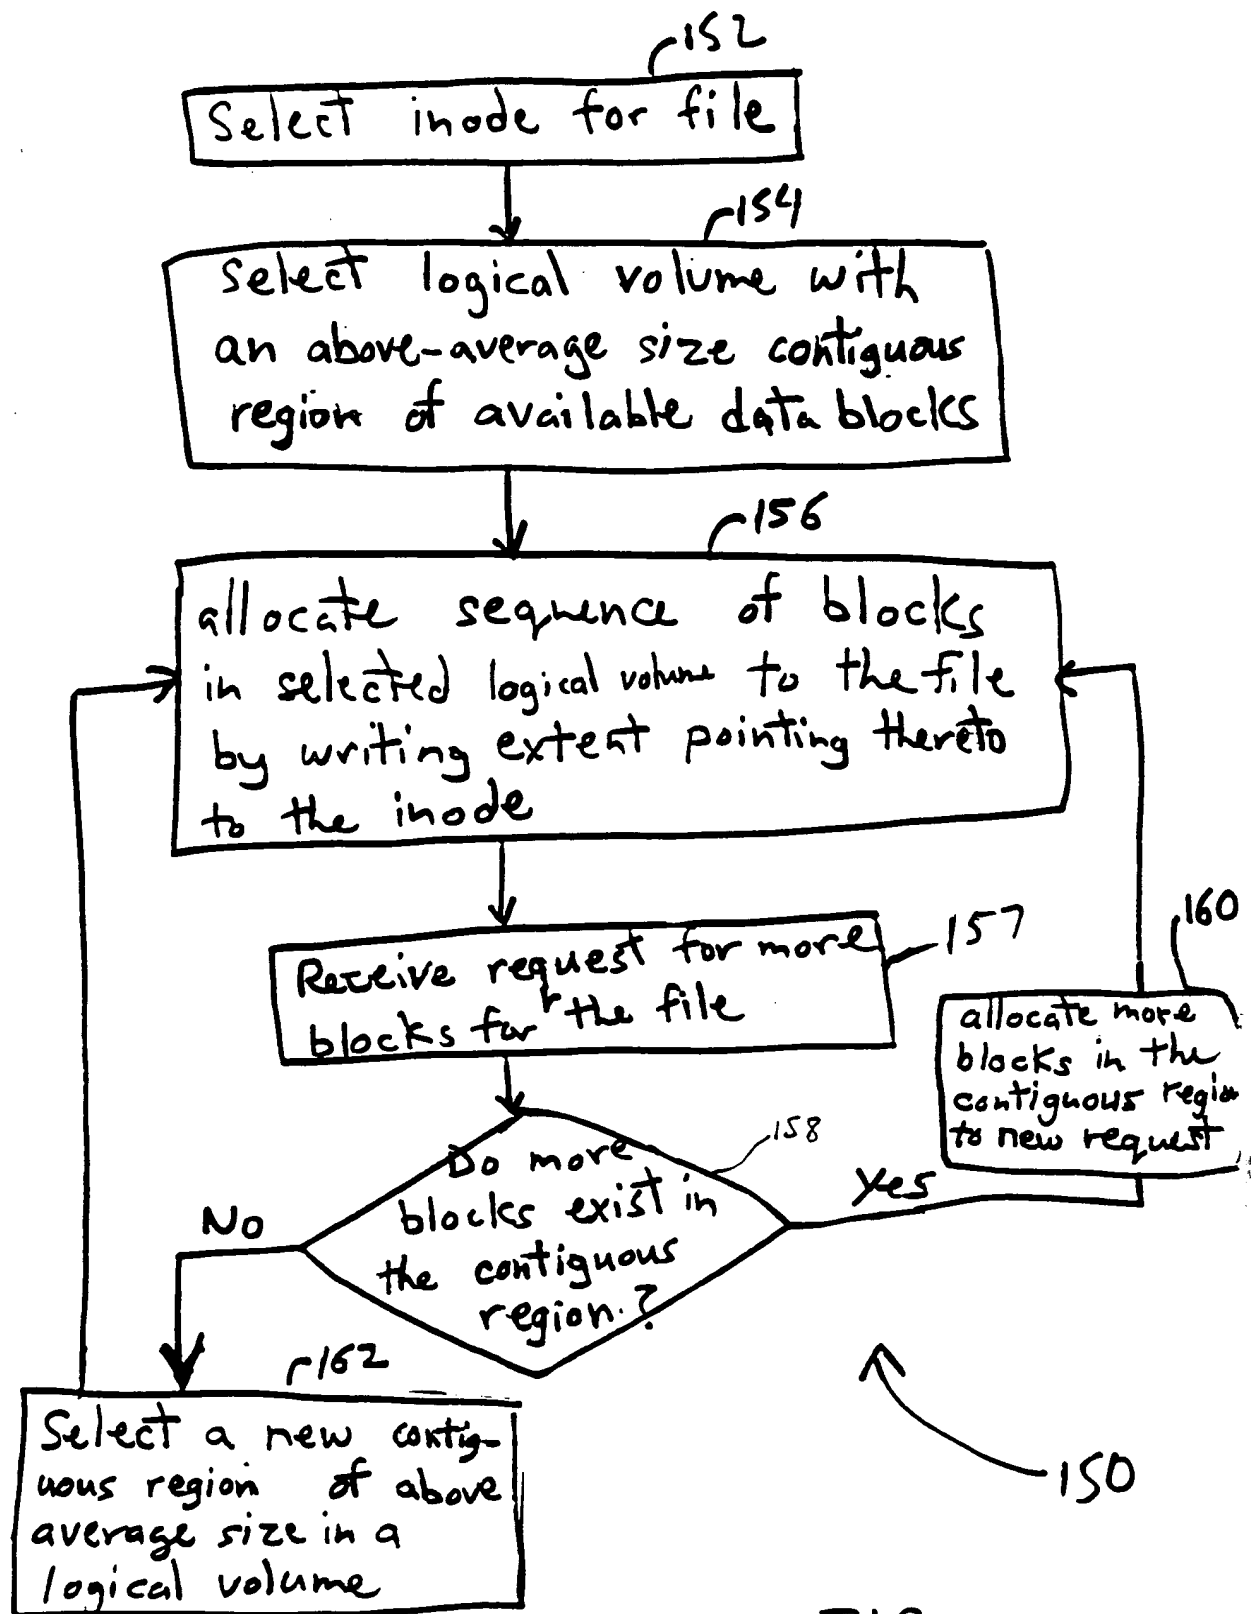 152
Select inode for file
154
Select logical volume with
an above-average size contiguous
region of available data blocks
156
allocate sequence of blocks
in selected logical volume to the file
by writing extent pointing thereto
to the inode
157
Receive request for more
blocks for the file
160
allocate more
blocks in the
contiguous region
to new request
158
Do more
blocks exist in
the contiguous
region?
Yes
No
162
Select a new contig-
uous region of above
average size in a
logical volume
150